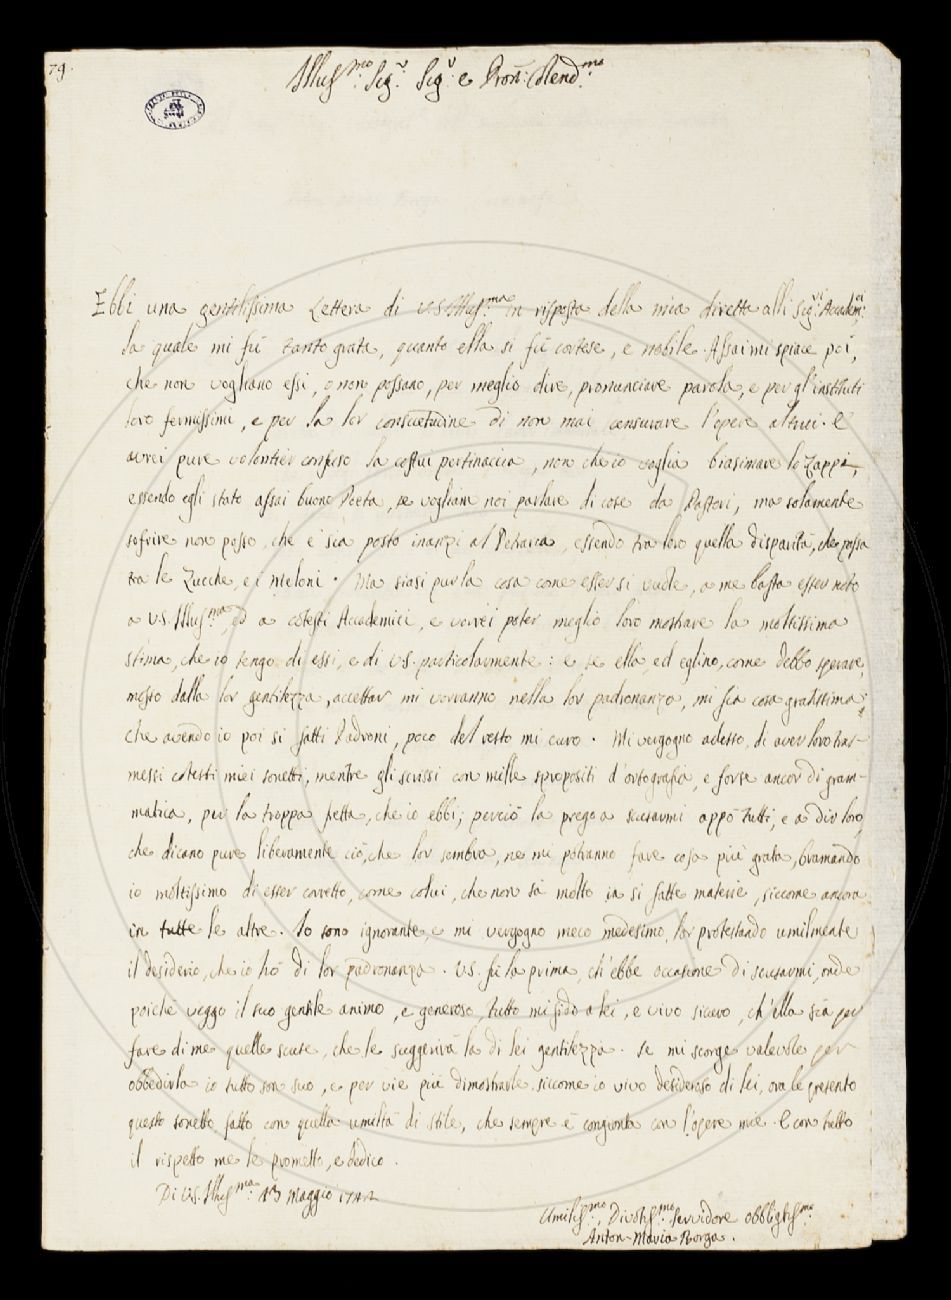 79.
Illus.mo Sig.r Sig.r e Pron. Colend.mo
Ebbi una gentilissima Lettera di V.S. Illus.ma in risposta della mia diretta alli Sig.ri Academ.ci,
la quale mi fù tanto grata, quanto ella si fù cortese, e nobile. Assai mi spiace poi,
che non vogliano essi, o non possano, per meglio dire, pronunciare parola, e per gl'instituti
loro fermissimi, e per la lor consuetudine di non mai censurare l'opere altrui. E
avrei pure volontier confuso la costui pertinacia, non che io voglia biasimare lo Zappi,
essendo egli stato assai buono Poeta, se vogliam noi parlare di cose da Pastori, ma solamente
sofrire non posso, che e' sia posto inanzi al Petrarca, essendo tra loro quella disparità, che possa
tra le Zucche, e i Meloni. Ma siasi pur la cosa come esser si vuole, a me basta esser noto
a V.S. Illus.ma, ed a cotesti Academici, e vorrei poter meglio loro mostrare la moltissima
stima, che io tengo di essi, e di V.S. particolarmente: e se ella ed eglino, come debbo sperare,
mosso dalla lor gentilezza, accettar mi vorranno nella lor padronanza, mi fia cosa gratissima;
che avendo io poi si fatti Padroni, poco del resto mi curo. Mi vergogno adesso, di aver loro tras-
messi cotesti miei sonetti, mentre gli scrissi con mille spropositi d'ortografia, e forse ancor di gram-
matica, per la troppa fretta, che io ebbi; perciò la prego a scusarmi appo tutti, e a dir loro,
che dicano pure liberamente ciò, che lor sembra, ne mi potranno fare cosa più grata, bramando
io moltissimo di esser corretto, come colui, che non sà molto in si fatte materie, siccome ancora
in tutte le altre. Io sono ignorante, e mi vergogno meco medesimo, lor protestando umilmente
il desiderio, che io hò di lor padronanza. V.S. fù la prima, ch'ebbe occasione di scusarmi, onde
poichè veggo il suo gentile animo, e generoso, tutto mi fido a lei, e vivo sicuro, ch'ella sia per
fare di me quelle scuse, che le suggeriva la di lei gentilezza. Se mi scorge valevole per
obbedirla io tutto son suo, e per vie più dimostrarle siccome io vivo desideroso di lei, ora le presento
questo sonetto fatto con quella umiltà di stile, che sempre è congionta con l'opere mie. E con tutto
il rispetto me le prometto, e dedico.
Di V.S. Illus.ma 13 Maggio 1742
Umiliss.mo, Divotiss.mo Servidore Obbligtiss.mo
Anton-Maria Borga.